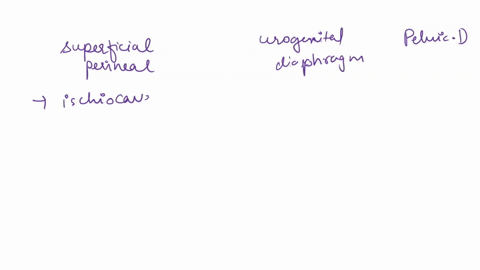 superficial perineal
urogenital diaphragm
Pelvic.D
→ ischiocav